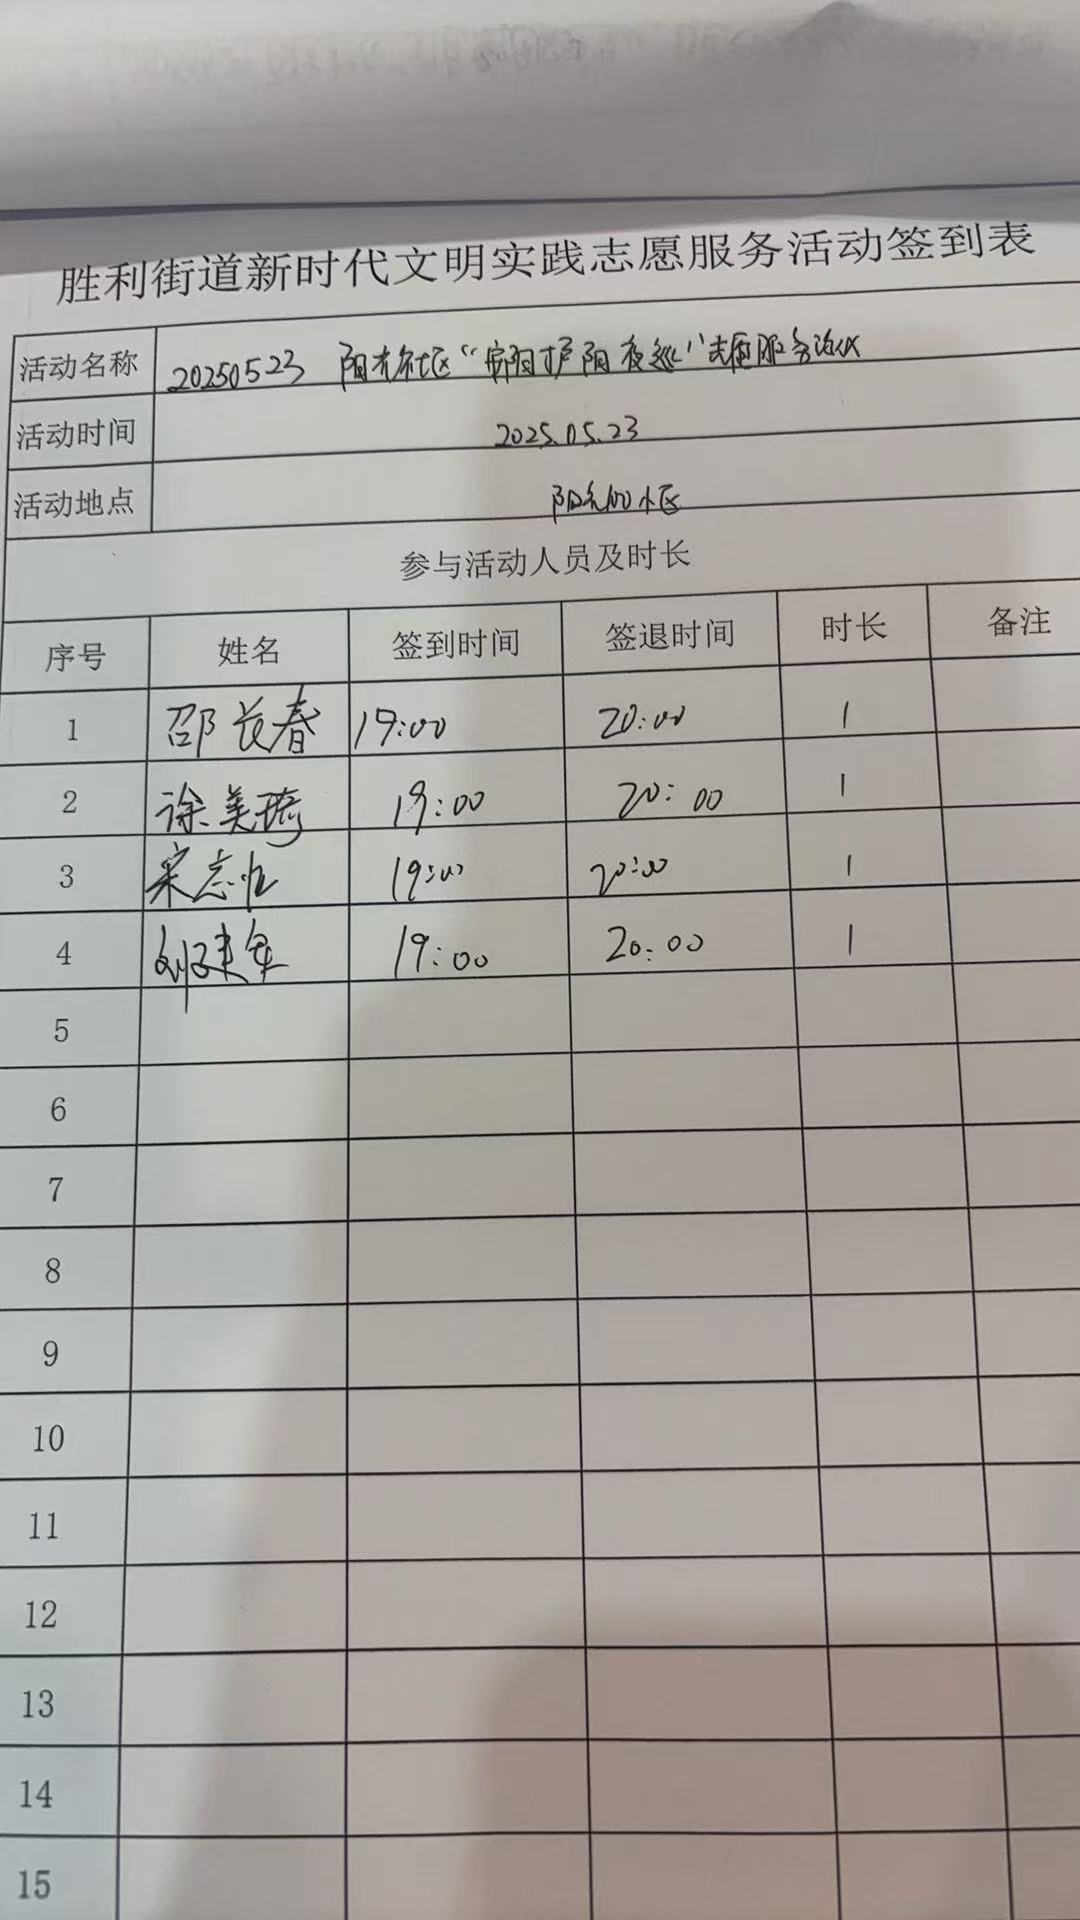 胜利街道新时代文明实践志愿服务活动签到表
活动名称 20250523 阳光社区“ 护阳夜巡”志愿服务活动
活动时间 2025.05.23
活动地点 阳光100小区
参与活动人员及时长
序号 姓名 签到时间 签退时间 时长 备注
1 邵长春 19:00 20:00 1
2 徐美琦 19:00 20:00 1
3 宋志 19:00 20:00 1
4 刘建军 19:00 20:00 1
5
6
7
8
9
10
11
12
13
14
15